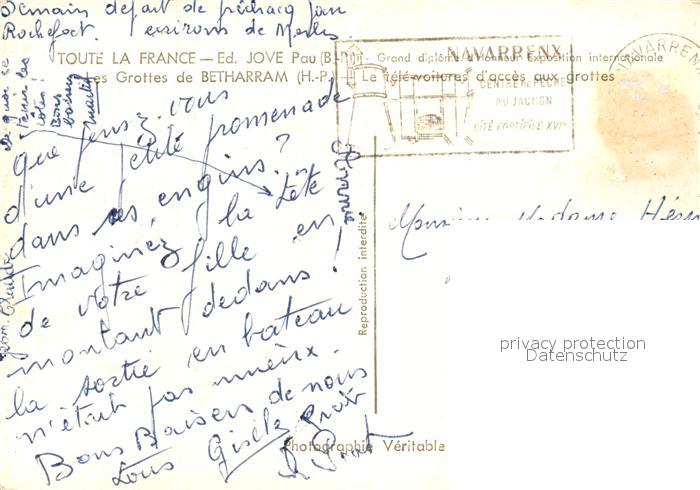 Demain départ de préchacq pour
Rochefort. environs de
TOUTE LA FRANCE — Ed. JOVE Pau (B.-P.) - Grand diplôme d'Honneur Exposition internationale
Les Grottes de BETHARRAM (H.-P.) - Le télé-voitures d'accès aux grottes
NAVARRENX
CENTRE DE PECHE
AU SAUMON
CITÉ FORTIFIÉE XVIe
NAVARREN
Bons
baisers
Que pensez-vous
d'une petite promenade
dans ces engins ?
Imaginez la tête
de votre fille en
montant dedans !
la sortie en bateau
n'était pas mieux.
Bons Baisers de nous
Tous Gisèle
Reproduction interdite
Monsieur Madame
privacy protection
Datenschutz
Photographie Véritable